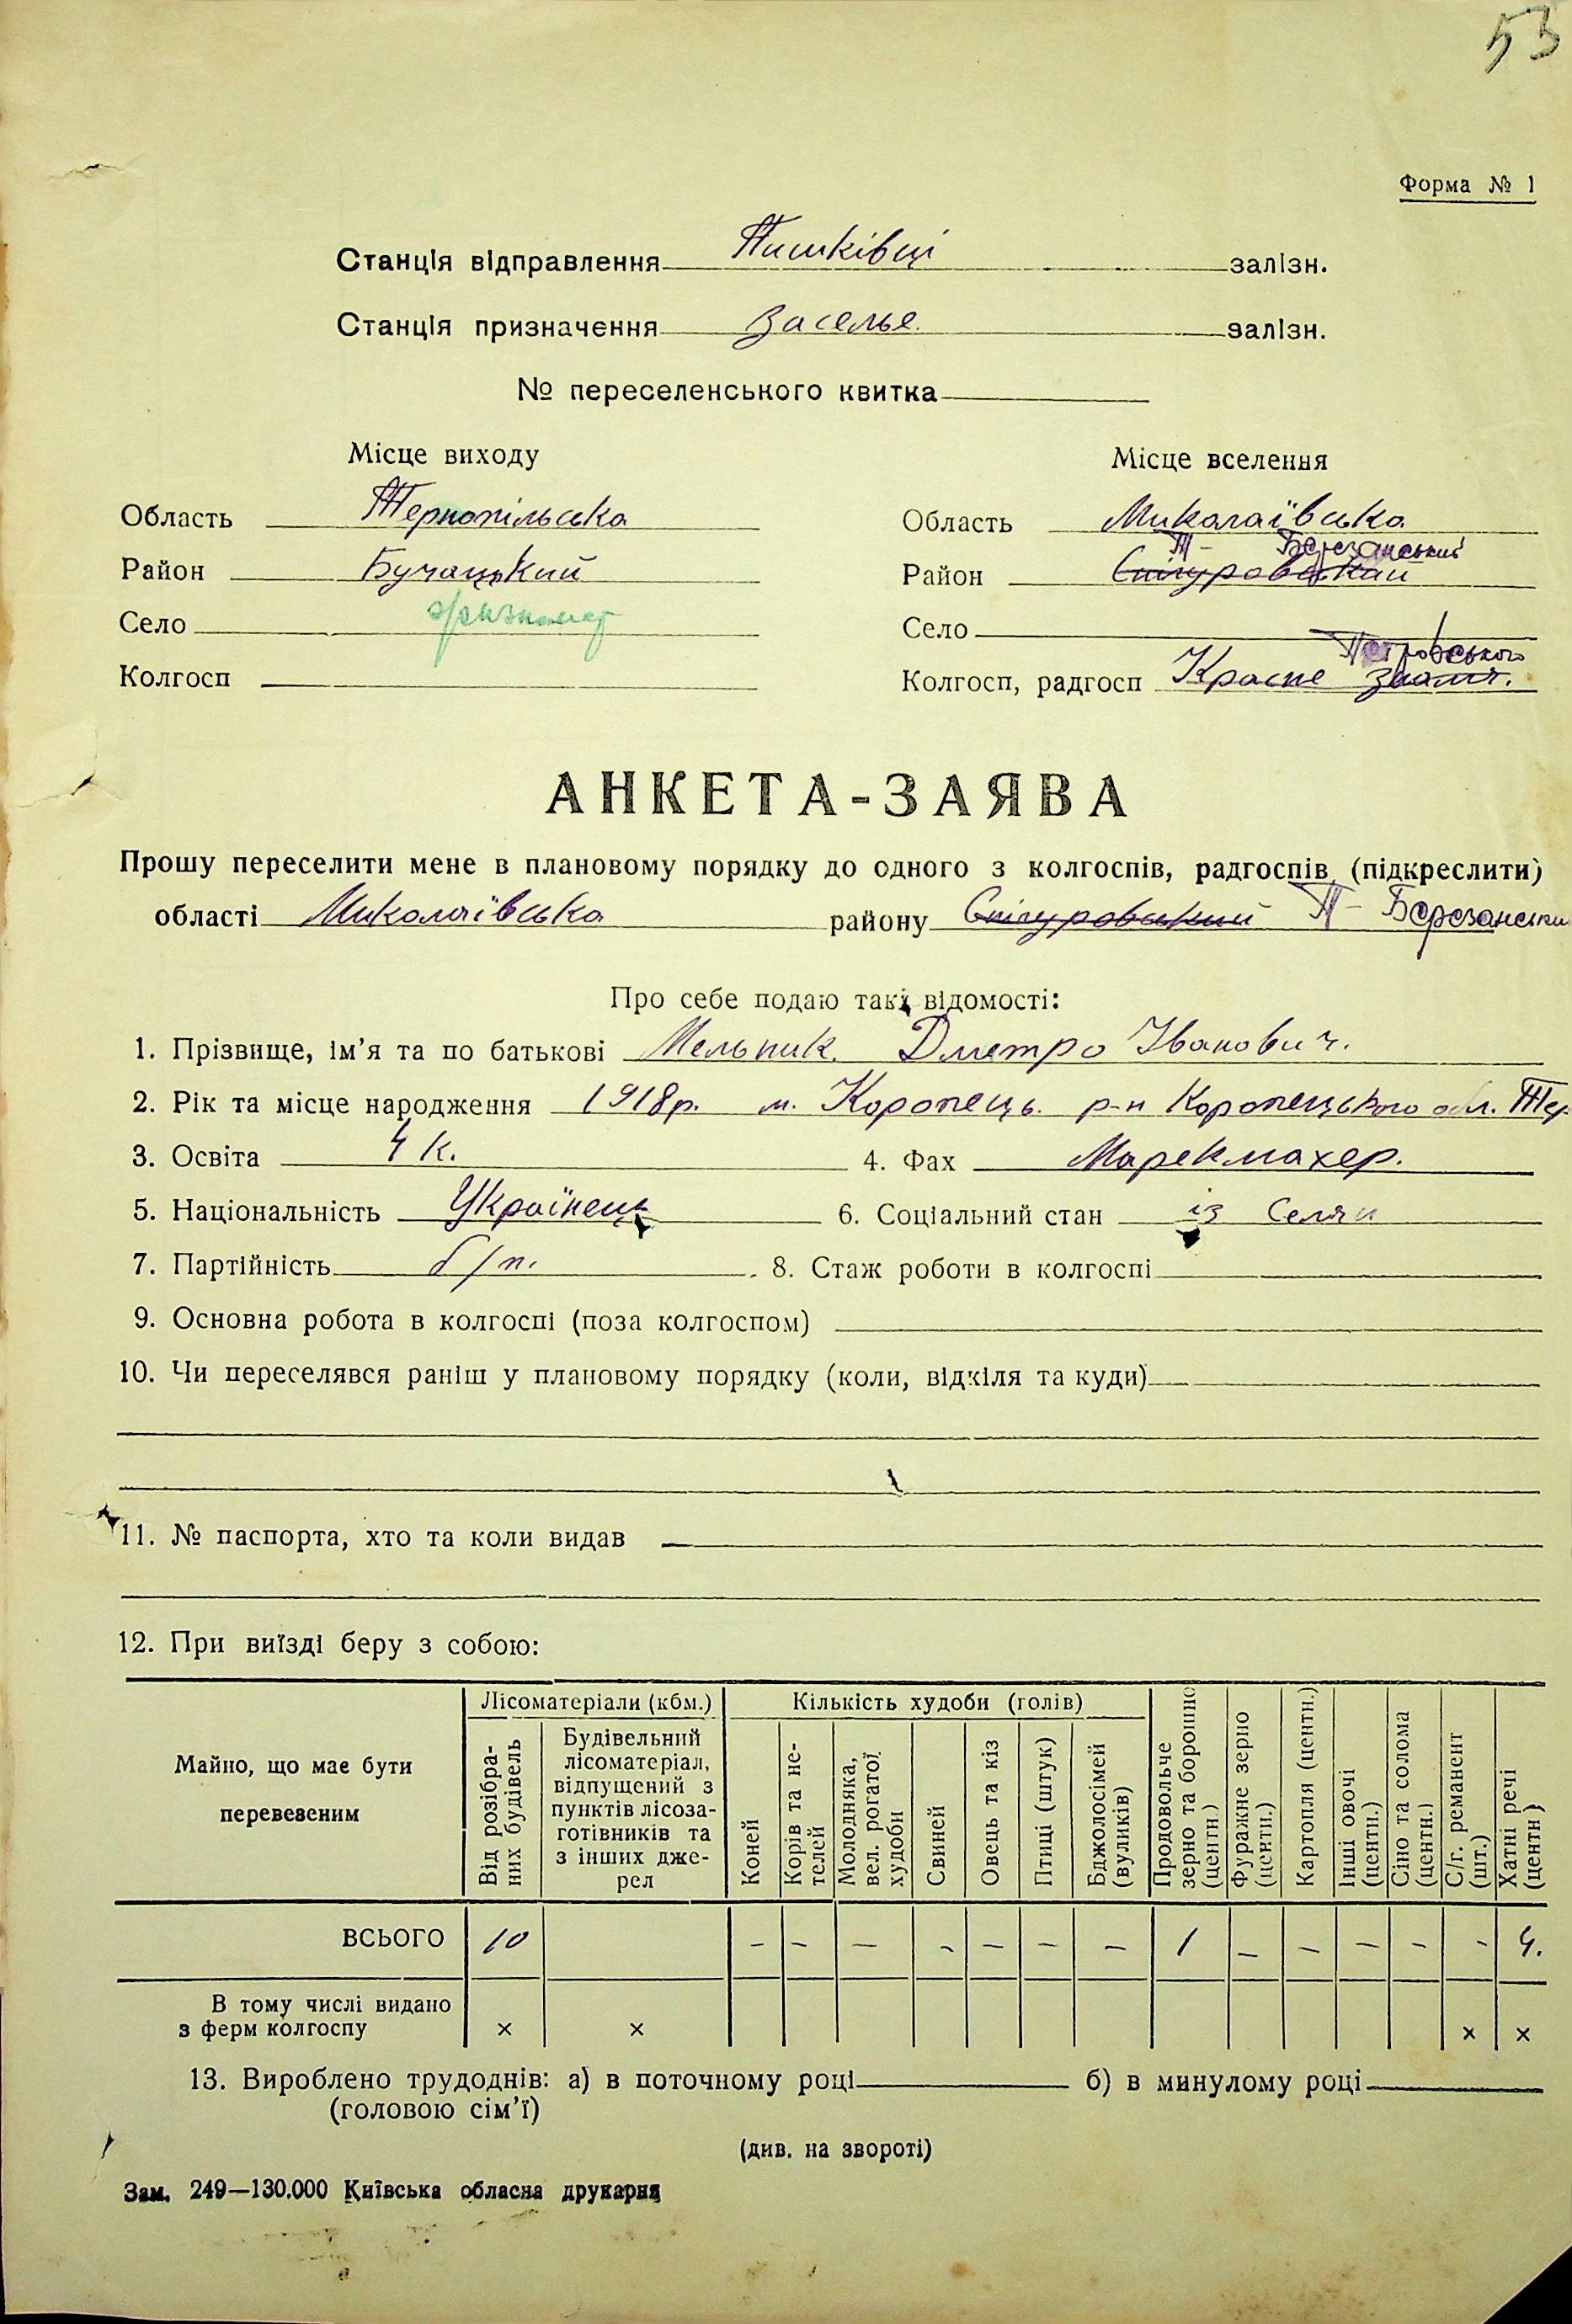 53
Форма № 1
Станція відправлення Пишківці залізн.
Станція призначення Заселье залізн.
№ переселенського квитка
Місце виходу Місце вселення
Область Тернопільська Область Миколаївська
Т- Березанський
Район Бучацький Район Снігуровський
Село Село
Петровського
Колгосп Колгосп, радгосп Красне знамя.
АНКЕТА-ЗАЯВА
Прошу переселити мене в плановому порядку до одного з колгоспів, радгоспів (підкреслити)
області Миколаївська району Снігуровський Т- Березански
Про себе подаю такі відомості:
1. Прізвище, ім'я та по батькові Мельник Дмитро Іванович.
2. Рік та місце народження 1918р. м. Коропець р-н Коропецького обл. Тер
3. Освіта 4 к. 4. Фах Марекмахер.
5. Національність Українець 6. Соціальний стан із Селян
7. Партійність б/п. 8. Стаж роботи в колгоспі
9. Основна робота в колгоспі (поза колгоспом)
10. Чи переселявся раніш у плановому порядку (коли, відкіля та куди)
11. № паспорта, хто та коли видав
12. При виїзді беру з собою:
Майно, що має бути перевезеним
Лісоматеріали (кбм.)
Від розібра-
них будівель
Будівельний
лісоматеріал,
відпущений з
пунктів лісоза-
готівників та
з інших дже-
рел
Кількість худоби (голів)
Коней
Корів та не-
телей
Молодняка,
вел. рогатої
худоби
Свиней
Овець та кіз
Птиці (штук)
Бджолосімей
(вуликів)
Продовольче
зерно та борошно
(центн.)
Фуражне зерно
(центн.)
Картопля (центн.)
Інші овочі
(центн.)
Сіно та солома
(центн.)
С/г. реманент
(шт.)
Хатні речі
(центн)
ВСЬОГО 10 – – – – – – – 1 – – – – – 4.
В тому числі видано
з ферм колгоспу × × × ×
13. Вироблено трудоднів: а) в поточному році б) в минулому році
(головою сім'ї)
(див. на звороті)
Зам. 249—130.000 Київська обласна друкарня